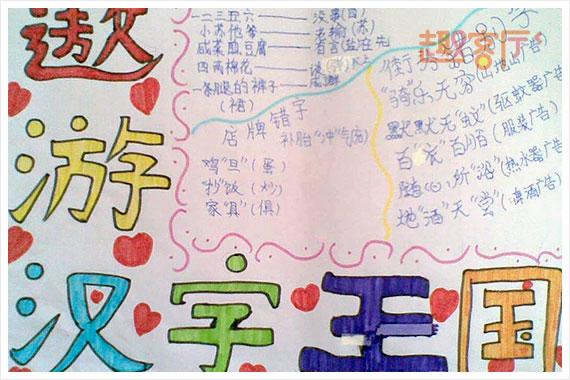 遨
游
汉字王国
一二三五六——没事(四)
小苏他爷——老输(苏)
咸菜皿豆腐——有言(盐)在先
四两棉花——谈
一条腿的裤子
(裙)
店牌错字
补胎"冲"气(充)
鸡"旦"(蛋)
抄"饭"(炒)
家"具"(俱)
街
"骑"乐无穷(山地山广告)
默默无"蚊"(驱蚊器广告)
百"衣"百顺(服装广告)
随心所"浴"(热水器广告)
地"酒"天"堂"(啤酒广告)
趣客厅